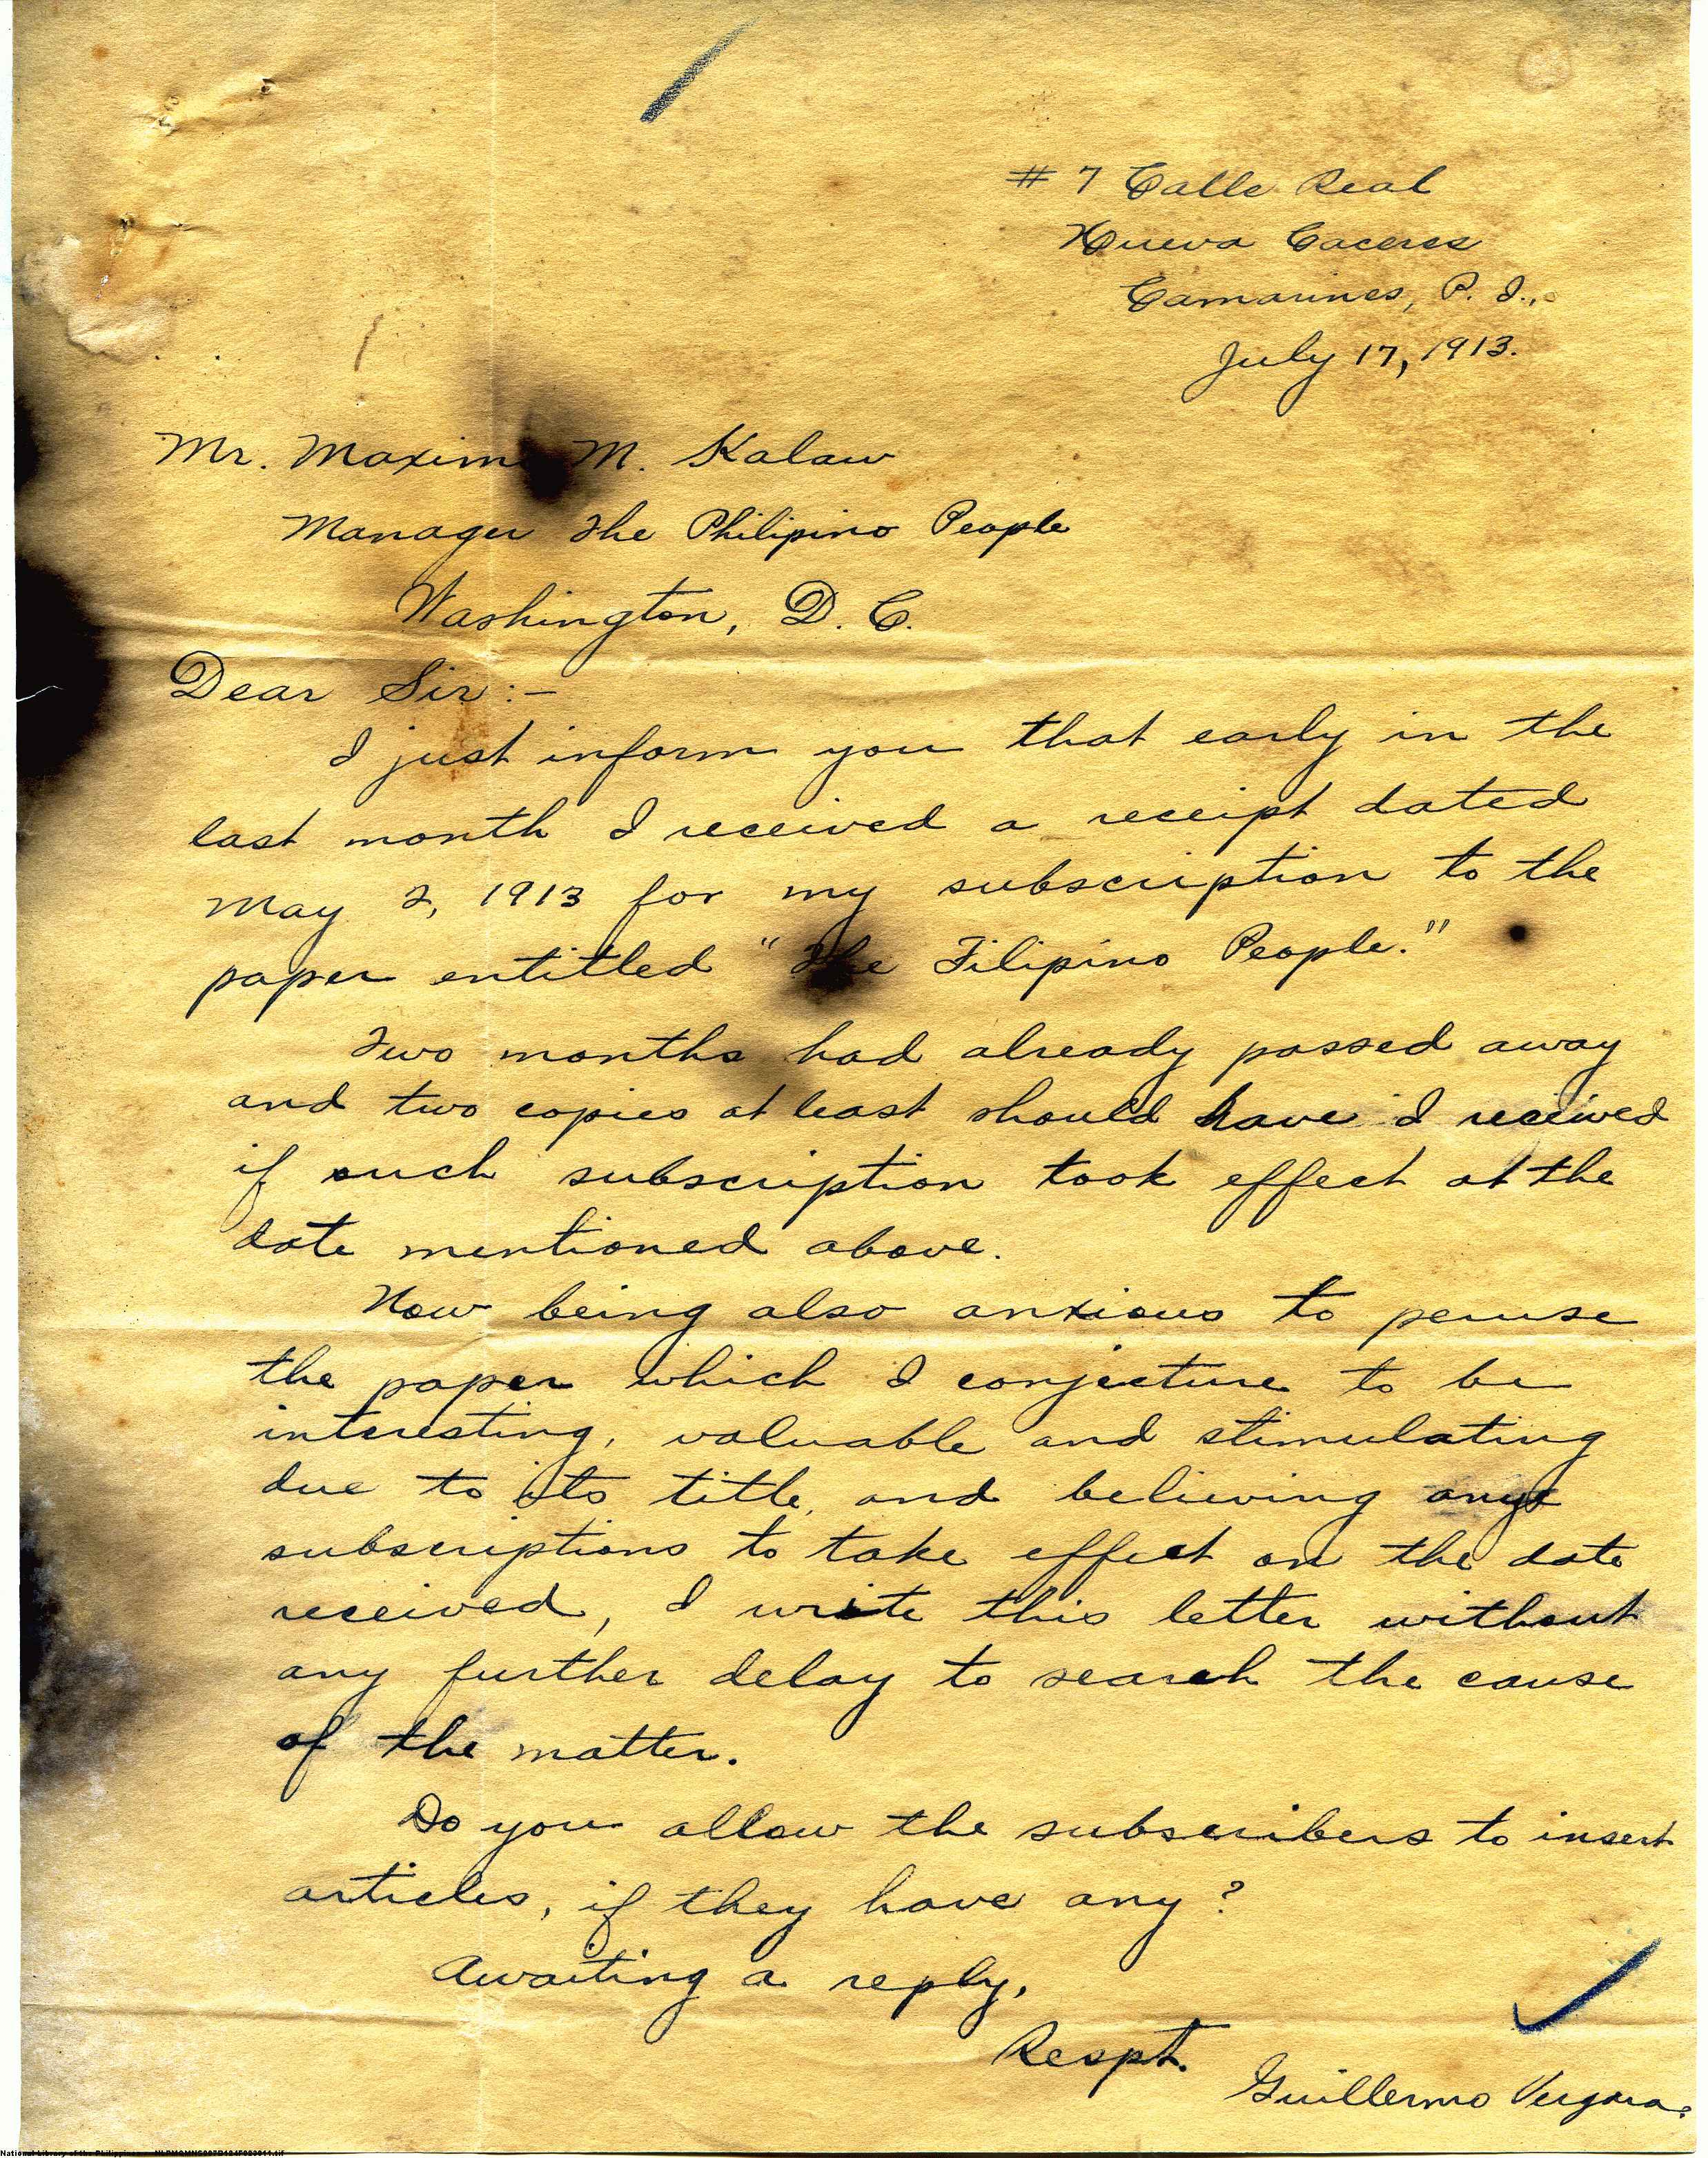 # 7 Calle Real
Nueva Caceres
Camarines, P. I.,
July 17, 1913.
Mr. Maxim M. Kalaw
Manager The Philipino People
Washington, D. C.
Dear Sir:-
I just inform you that early in the
last month I received a receipt dated
May 2, 1913 for my subscription to the
paper entitled "The Filipino People."
Two months had already passed away
and two copies at least should have I received
if such subscription took effect at the
date mentioned above.
Now being also anxious to peruse
the paper which I conjecture to be
interesting, valuable and stimulating
due to its title, and believing any
subscriptions to take effect on the date
received, I write this letter without
any further delay to search the cause
of the matter.
Do you allow the subscribers to insert
articles, if they have any?
Awaiting a reply,
Respt.
Guillermo Vergara.
National Library of the Philippines